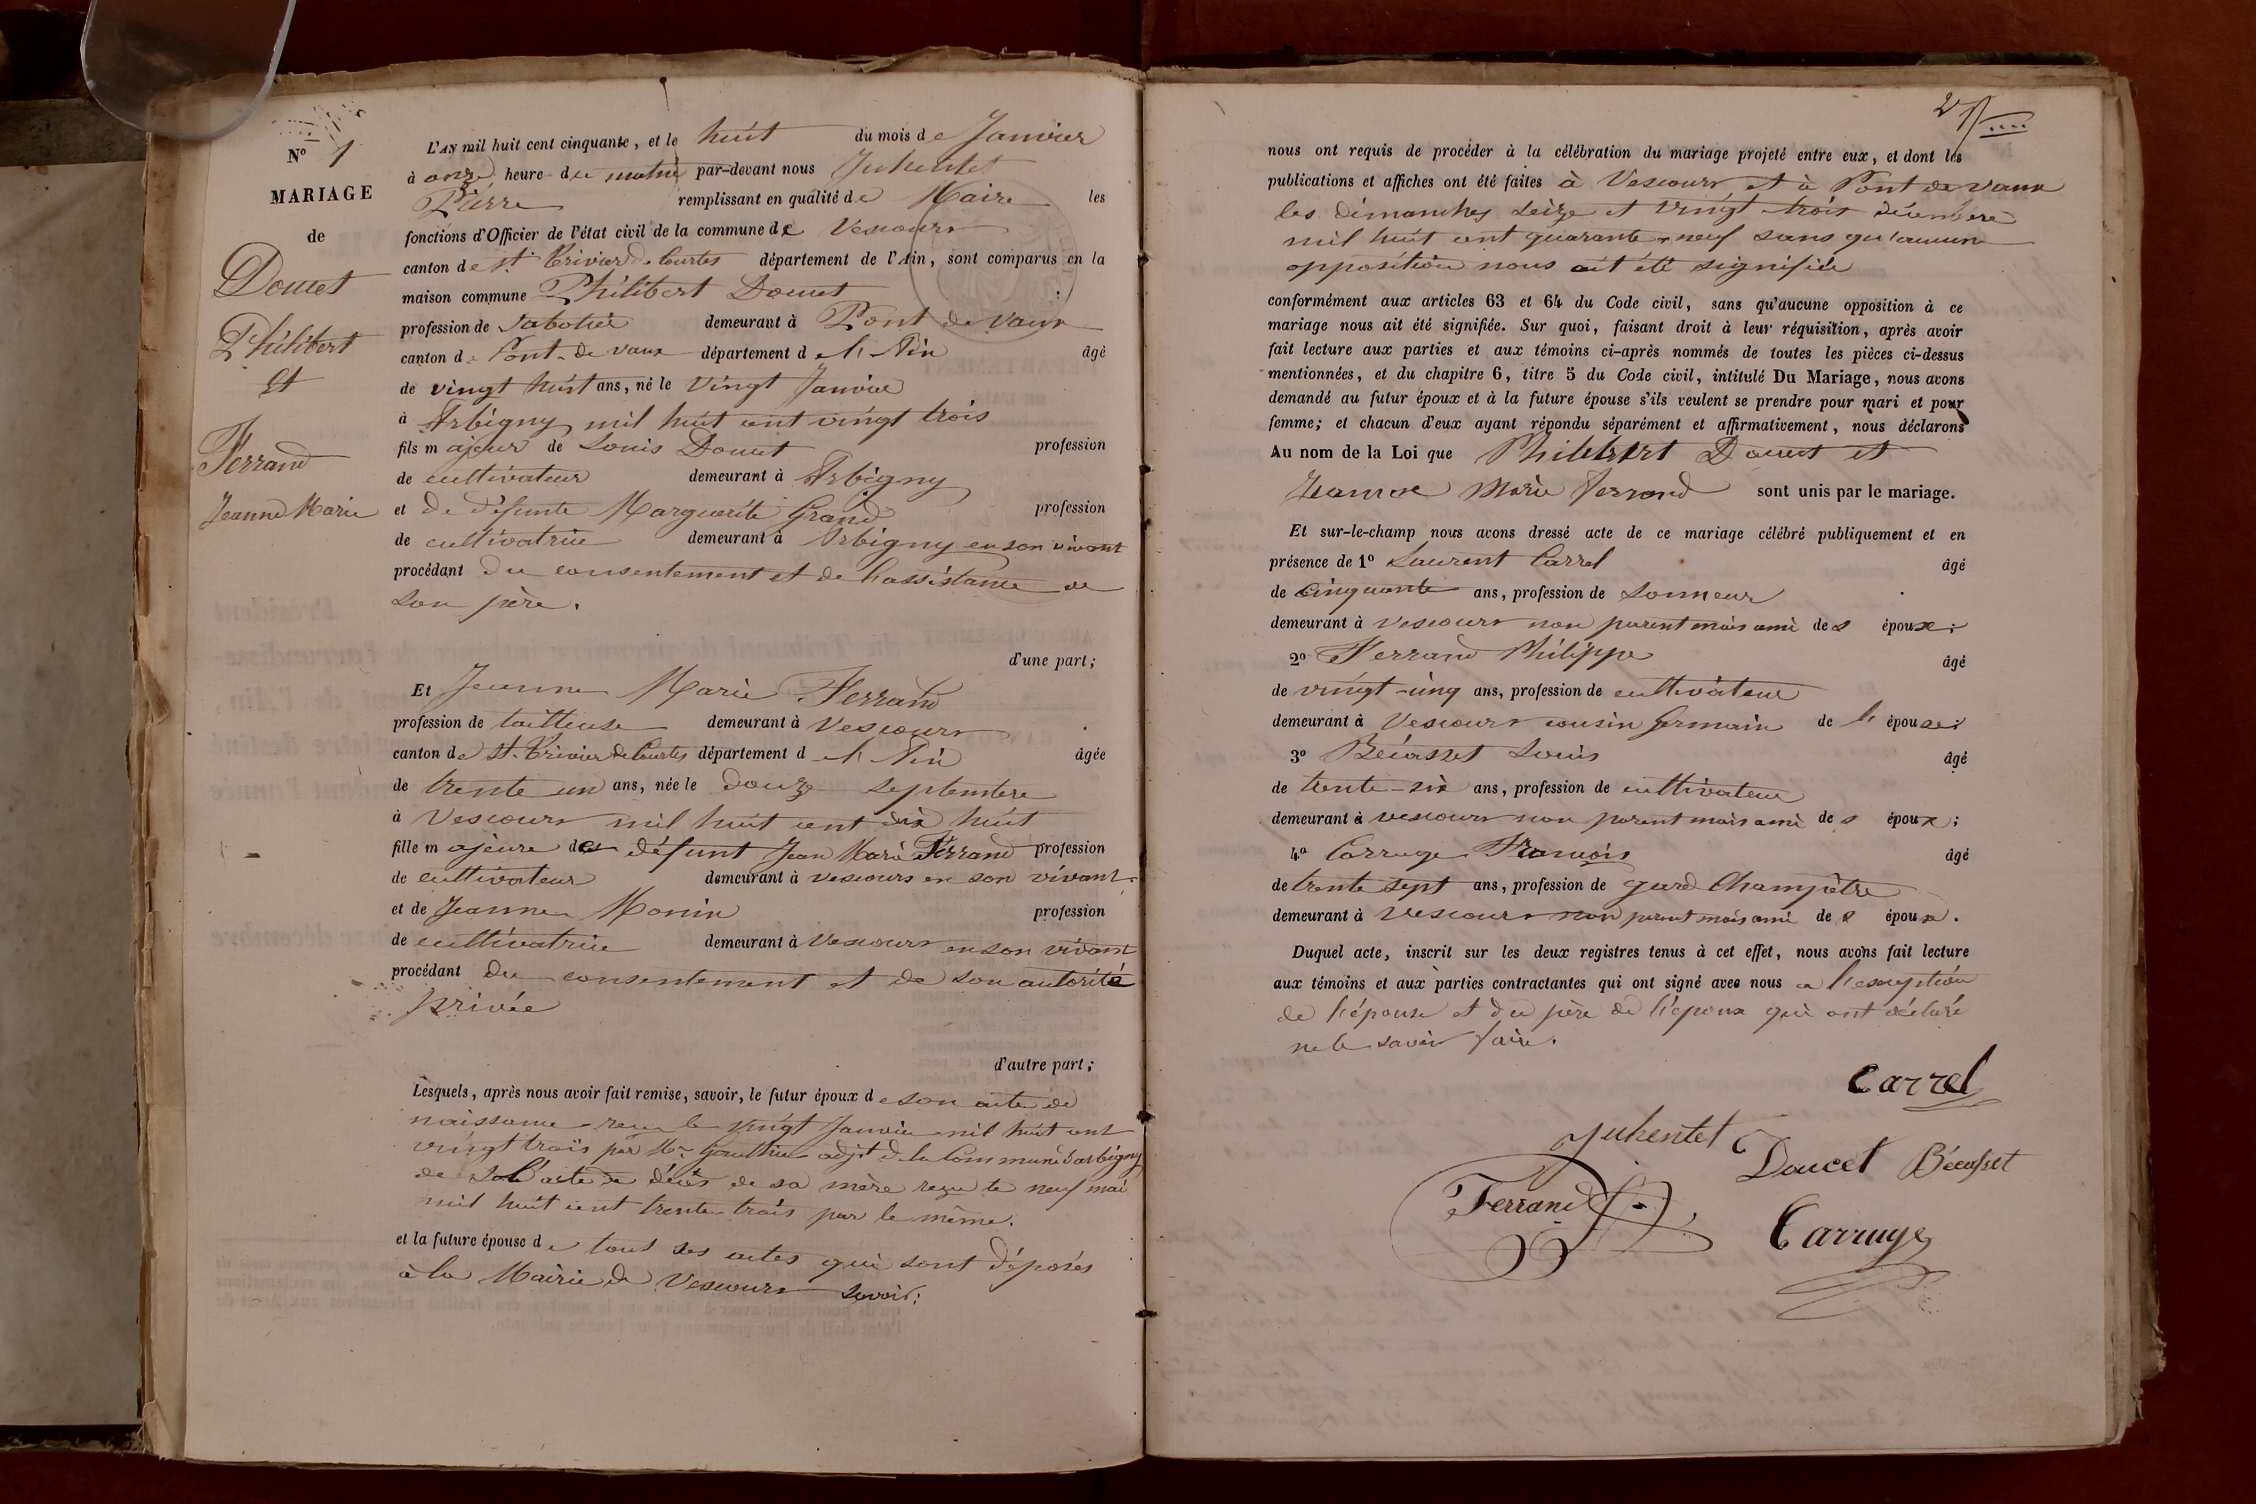 N° 1
MARIAGE
de
Doucet
Philibert
Et
Ferrand
Jeanne Marie
L'AN mil huit cent cinquante, et le huit du mois de Janvier
à onze heure du matin par-devant nous Juhentet
Pierre remplissant en qualité de Maire les
fonctions d'Officier de l'état civil de la commune de Vescours
canton de St. Trivier de Courtes département de l'Ain, sont comparus en la
maison commune Philibert Doucet
profession de Sabotier demeurant à Pont de Vaux
canton de Pont-de-vaux département de l'Ain âgé
de vingt huit ans, né le vingt Janvier
à Arbigny mil huit cent vingt trois
fils majeur de Louis Doucet profession
de cultivateur demeurant à Arbigny
et de défunte Marguerite Grand profession
de cultivatrice demeurant à Arbigny en son vivant
procédant du consentement et de l'assistance de
son père.
d'une part;
Et Jeanne Marie Ferrand
profession de tailleuse demeurant à Vescours
canton de St. Trivier de Courtes département de l'Ain âgée
de trente un ans, née le douze septembre
à Vescours mil huit cent dix huit
fille majeure des défunt Jean Marie Ferrand profession
de cultivateur demeurant à Vescours en son vivant
et de Jeanne Monin profession
de cultivatrice demeurant à Vescours en son vivant
procédant du consentement et de son autorité
privée
d'autre part;
Lesquels, après nous avoir fait remise, savoir, le futur époux de son acte de
naissance reçu le vingt Janvier mil huit cent
vingt trois par Mr. adjt de la Commune d'arbigny
de l'acte de décès de sa mère reçu le neuf mai
mil huit cent trente trois par le même.
et la future épouse de tout ses actes qui sont déposés
à la Mairie de Vescours savoir:
nous ont requis de procéder à la célébration du mariage projeté entre eux, et dont les
publications et affiches ont été faites à Vescours et à Pont de vaux
les dimanches seize et vingt trois décembre
mil huit cent quarante neuf sans qu'aucune
opposition nous ait été signifiée
conformément aux articles 63 et 64 du Code civil, sans qu'aucune opposition à ce
mariage nous ait été signifiée. Sur quoi, faisant droit à leur réquisition, après avoir
fait lecture aux parties et aux témoins ci-après nommés de toutes les pièces ci-dessus
mentionnées, et du chapitre 6, titre 5 du Code civil, intitulé Du Mariage, nous avons
demandé au futur époux et à la future épouse s'ils veulent se prendre pour mari et pour
femme; et chacun d'eux ayant répondu séparément et affirmativement, nous déclarons
Au nom de la Loi que Philibert Doucet et
Jeanne Marie Ferrand sont unis par le mariage.
Et sur-le-champ nous avons dressé acte de ce mariage célébré publiquement et en
présence de 1° Laurent Carrel âgé
de cinquante ans, profession de sonneur
demeurant à Vescours non parent mais ami des époux;
2° Ferrand Philippe âgé
de vingt-cinq ans, profession de cultivateur
demeurant à Vescours cousin Germain de l'épouse;
3° Bécasset Louis âgé
de trente-six ans, profession de cultivateur
demeurant à vescours non parent mais ami des époux;
4° Carruge François âgé
de trente sept ans, profession de garde Champêtre
demeurant à Vescours non parent mais ami des époux.
Duquel acte, inscrit sur les deux registres tenus à cet effet, nous avons fait lecture
aux témoins et aux parties contractantes qui ont signé avec nous a l'exception
de l'épouse et du père de l'époux qui ont déclaré
ne le savoir faire.
Carrel
Juhentet
Doucet Bécasset
Ferrand
Carruge